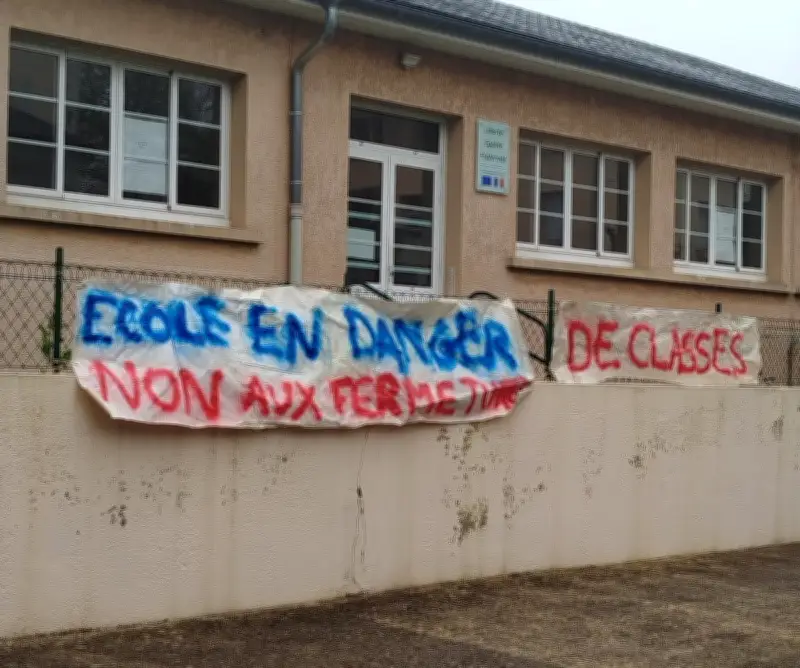 ECOLE EN DANGER
NON AUX FERMETURE
DE CLASSES